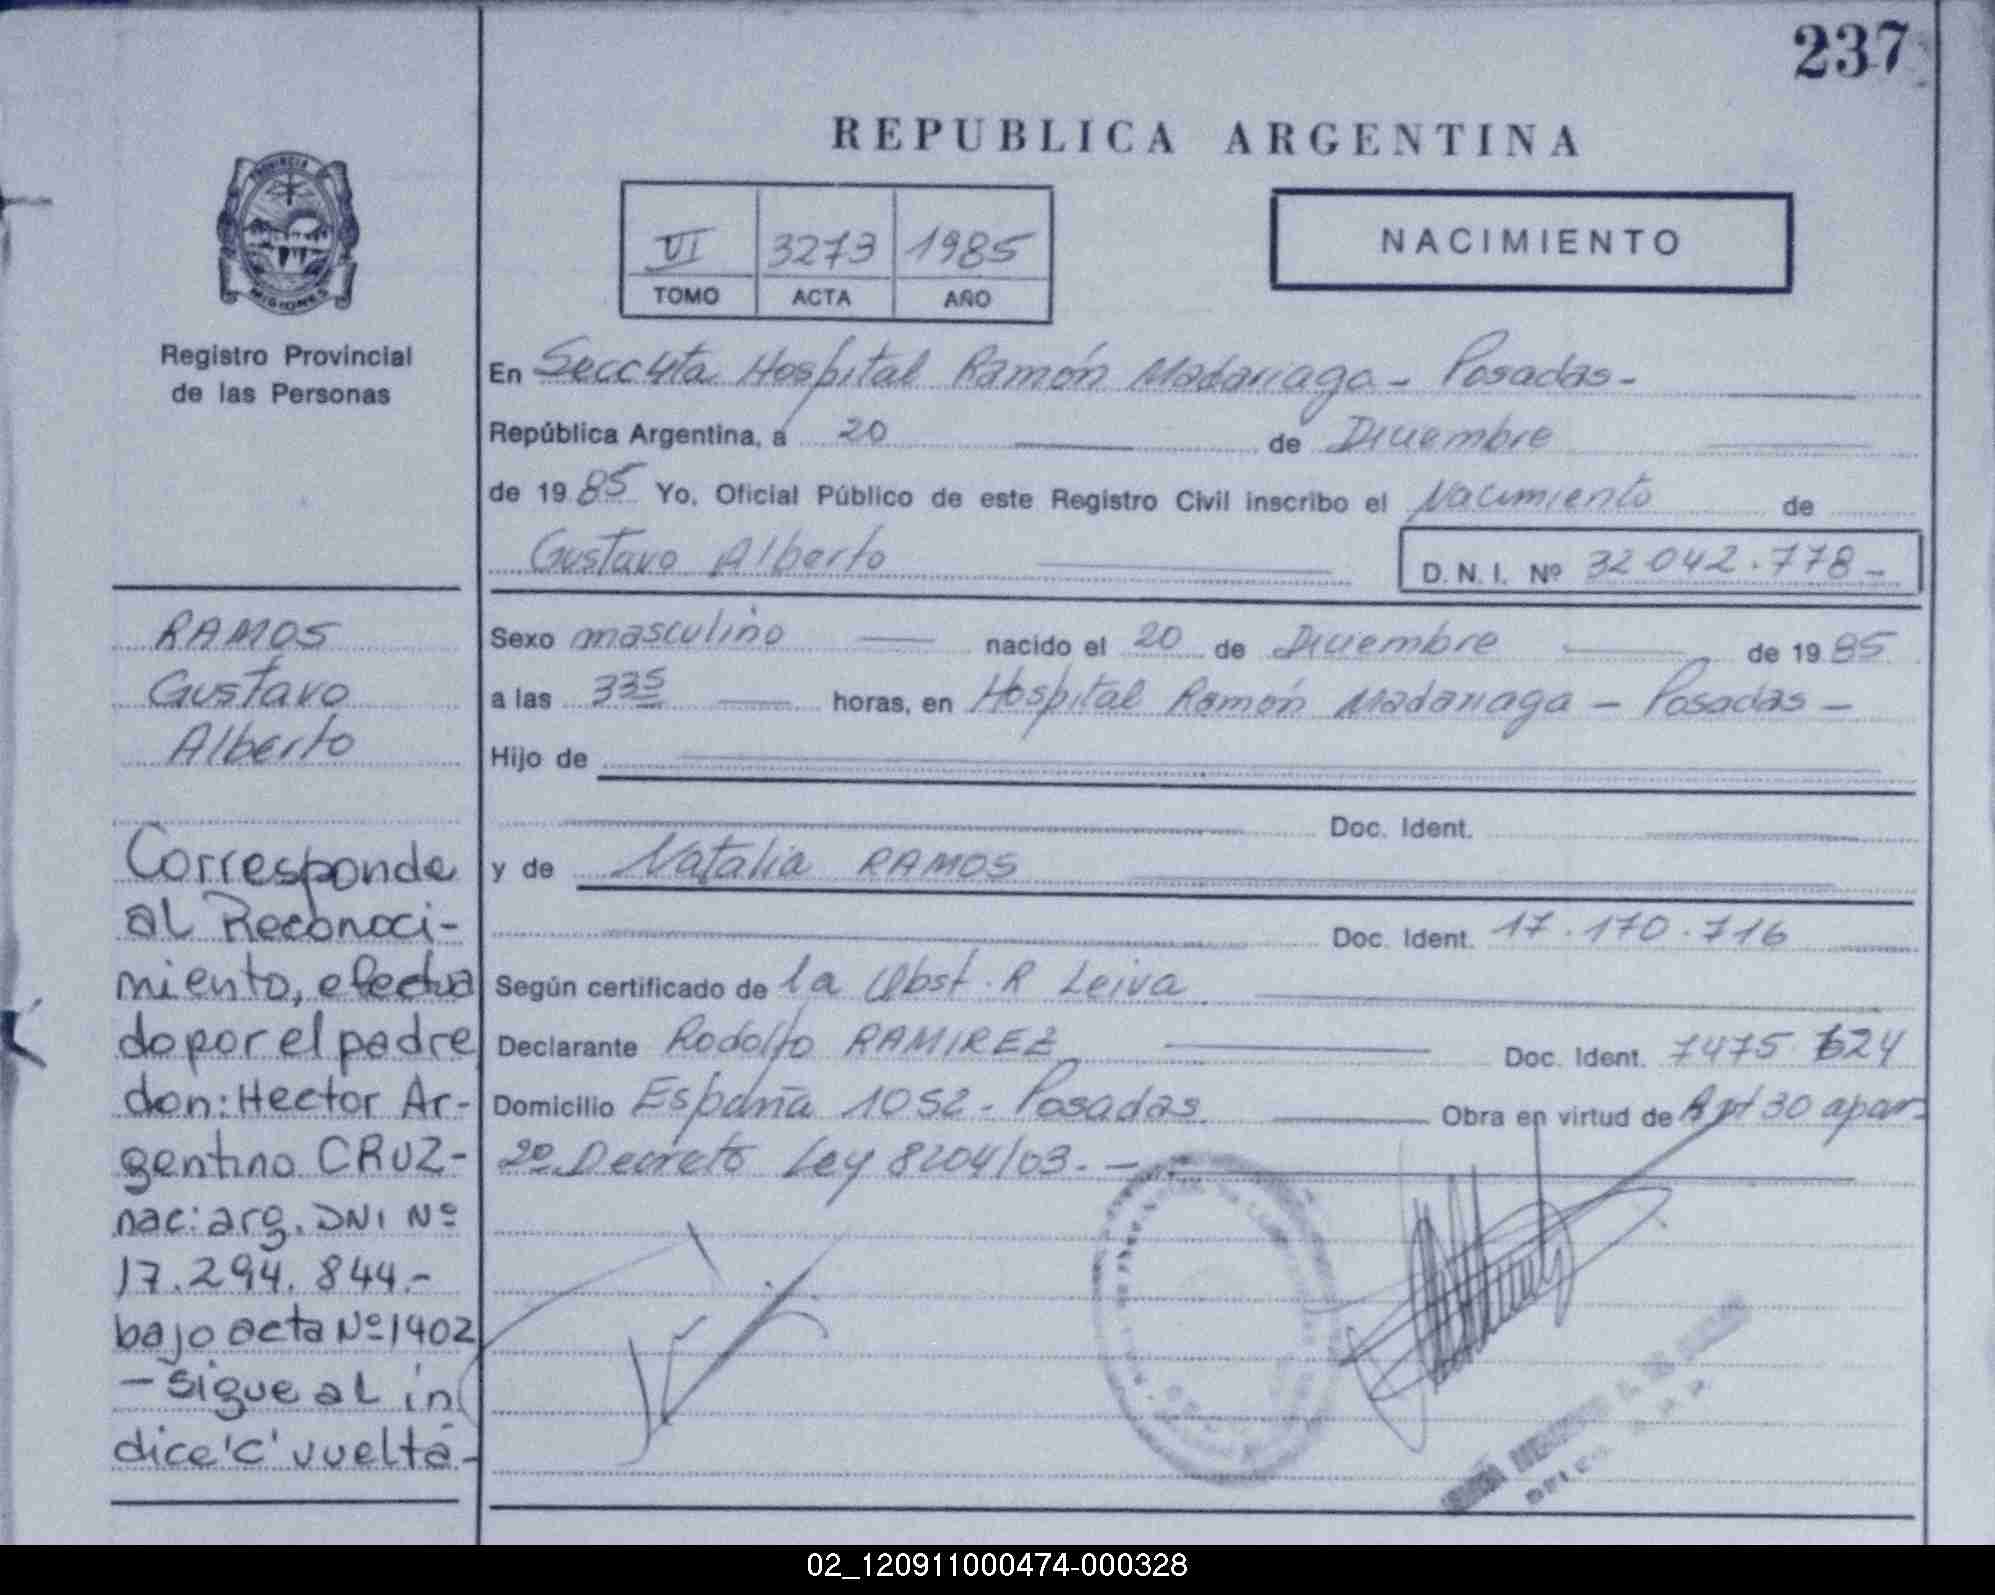 237
REPUBLICA ARGENTINA
PROVINCIA
MISIONES
Registro Provincial
de las Personas
VI 3273 1985
TOMO ACTA AÑO
NACIMIENTO
En Secc 4ta Hospital Ramón Madariaga - Posadas -
República Argentina, a 20 de Diciembre
de 19 85 Yo, Oficial Público de este Registro Civil inscribo el Nacimiento de
Gustavo Alberto D.N.I. Nº 32.042.778-
Sexo masculino nacido el 20 de Diciembre de 19 85
a las 3 35 horas, en Hospital Ramón Madariaga - Posadas -
Hijo de
Doc. Ident.
y de Natalia RAMOS
Doc. Ident. 17.170.716
Según certificado de la Obst. R Leiva
Declarante Rodolfo RAMIREZ Doc. Ident. 7475 624
Domicilio España 1052 - Posadas Obra en virtud de Art 30 apar
2º Decreto Ley 8204/63. -
RAMOS
Gustavo
Alberto
Corresponde
al Reconoci-
miento, efectua
do por el padre
don: Hector Ar-
gentino CRUZ-
nac: arg. DNI Nº
17.294.844.-
bajo acta Nº 1402
- sigue al in
dice 'C' vuelta-
02_120911000474-000328